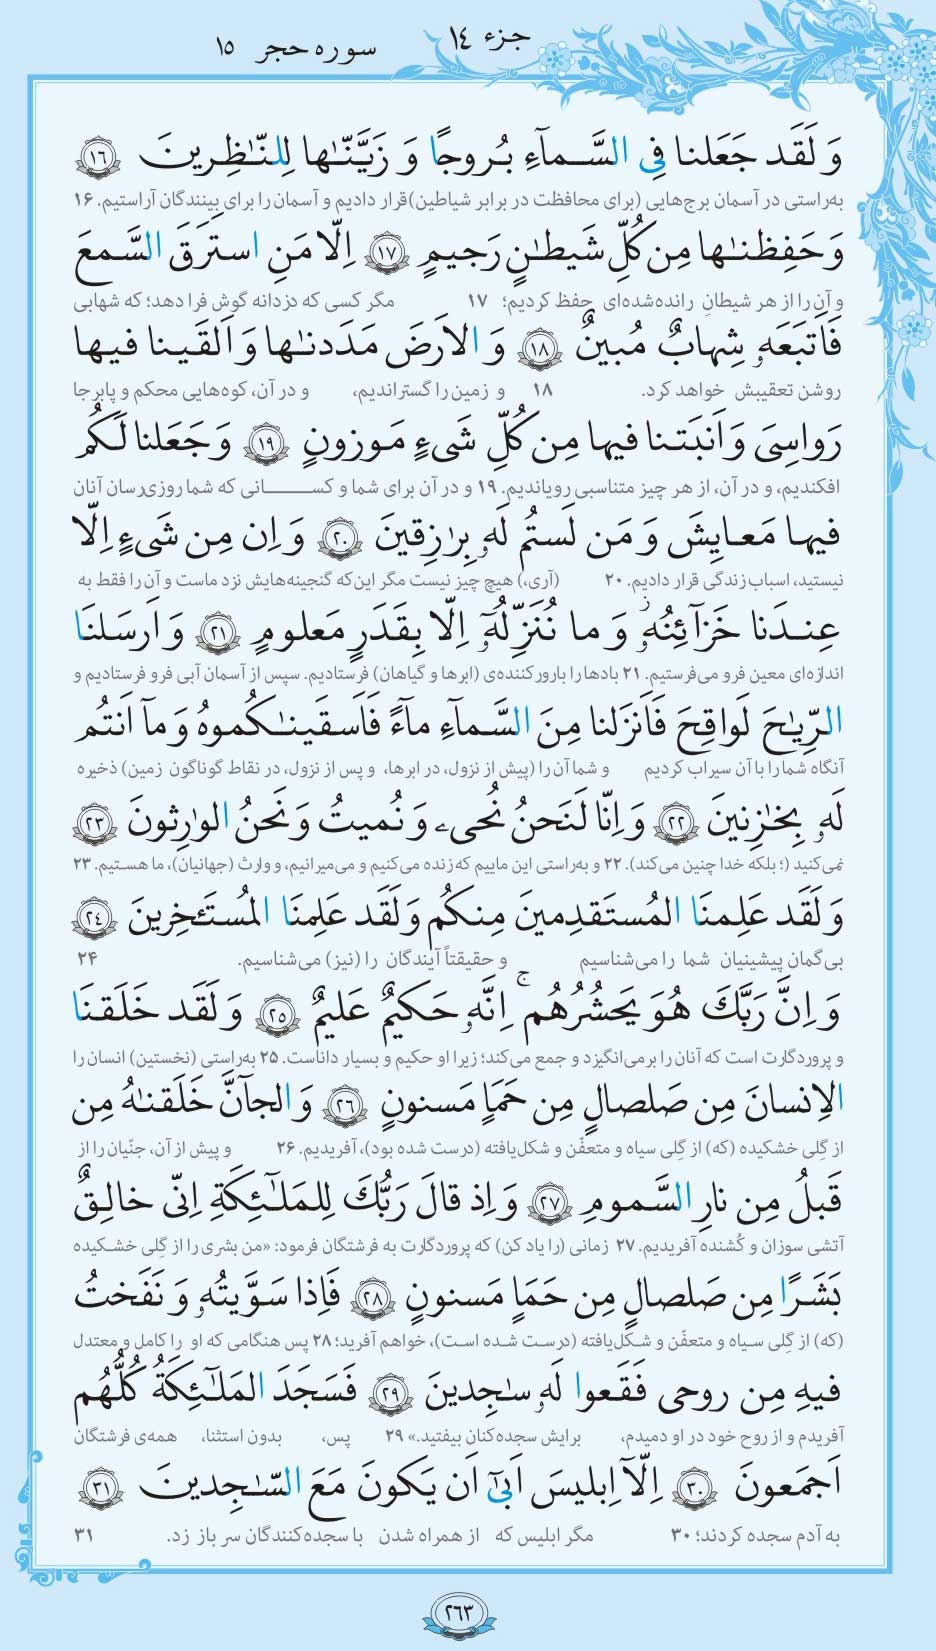 جزء ۱۴
سوره حجر ۱۵
وَ لَقَد جَعَلنا فِی السَّمآءِ بُروجًا وَ زَیَّنّٰها لِلنّٰظِرینَ ﴿١٦﴾
به‌راستی در آسمان برج‌هایی (برای محافظت در برابر شیاطین) قرار دادیم و آسمان را برای بینندگان آراستیم. ۱۶
وَ حَفِظنٰها مِن کُلِّ شَیطٰنٍ رَجیمٍ ﴿١٧﴾ اِلّا مَنِ استَرَقَ السَّمعَ
و آن را از هر شیطانِ رانده‌شده‌ای حفظ کردیم؛ ۱۷ مگر کسی که دزدانه گوش فرا دهد؛ که شهابی
فَاَتبَعَهٗ شِهابٌ مُبینٌ ﴿١٨﴾ وَ الاَرضَ مَدَدنٰها وَ اَلقَینا فیها
روشن تعقیبش خواهد کرد. ۱۸ و زمین را گستراندیم، و در آن، کوه‌هایی محکم و پابرجا
رَواسِیَ وَ اَنبَتنا فیها مِن کُلِّ شَیءٍ مَوزونٍ ﴿١٩﴾ وَ جَعَلنا لَکُم
افکندیم، و در آن، از هر چیز متناسبی رویاندیم. ۱۹ و در آن برای شما و کسانی که شما روزی‌رسان آنان
فیها مَعایِشَ وَ مَن لَستُم لَهٗ بِرٰزِقینَ ﴿٢٠﴾ وَ اِن مِن شَیءٍ اِلّا
نیستید، اسباب زندگی قرار دادیم. ۲۰ (آری،) هیچ چیز نیست مگر این‌که گنجینه‌هایش نزد ماست و آن را فقط به
عِندَنا خَزآئِنُهٗ ز وَ ما نُنَزِّلُهٗٓ اِلّا بِقَدَرٍ مَعلومٍ ﴿٢١﴾ وَ اَرسَلنَا
اندازه‌ای معین فرو می‌فرستیم. ۲۱ بادها را بارورکننده‌ی (ابرها و گیاهان) فرستادیم. سپس از آسمان آبی فرو فرستادیم و
الرِّیٰحَ لَواقِحَ فَاَنزَلنا مِنَ السَّمآءِ مآءً فَاَسقَینٰکُموهُ وَ مآ اَنتُم
آنگاه شما را با آن سیراب کردیم و شما آن را (پیش از نزول، در ابرها، و پس از نزول، در نقاط گوناگون زمین) ذخیره
لَهٗ بِخٰزِنینَ ﴿٢٢﴾ وَ اِنّا لَنَحنُ نُحیۦ وَ نُمیتُ وَ نَحنُ الوارِثونَ ﴿٢٣﴾
نمی‌کنید (؛ بلکه خدا چنین می‌کند). ۲۲ و به‌راستی این ماییم که زنده می‌کنیم و می‌میرانیم، و وارث (جهانیان)، ما هستیم. ۲۳
وَ لَقَد عَلِمنَا المُستَقدِمینَ مِنکُم وَ لَقَد عَلِمنَا المُستَـٔخِرینَ ﴿٢٤﴾
بی‌گمان پیشینیان شما را می‌شناسیم و حقیقتاً آیندگان را (نیز) می‌شناسیم. ۲۴
وَ اِنَّ رَبَّکَ هُوَ یَحشُرُهُم ج اِنَّهٗ حَکیمٌ عَلیمٌ ﴿٢٥﴾ وَ لَقَد خَلَقنَا
و پروردگارت است که آنان را برمی‌انگیزد و جمع می‌کند؛ زیرا او حکیم و بسیار داناست. ۲۵ به‌راستی (نخستین) انسان را
الاِنسانَ مِن صَلصالٍ مِن حَمَاٍ مَسنونٍ ﴿٢٦﴾ وَ الجآنَّ خَلَقنٰهُ مِن
از گِلی خشکیده (که) از گِلی سیاه و متعفّن و شکل‌یافته (درست شده بود)، آفریدیم. ۲۶ و پیش از آن، جنّیان را از
قَبلُ مِن نارِ السَّمومِ ﴿٢٧﴾ وَ اِذ قالَ رَبُّکَ لِلمَلٰٓئِکَةِ اِنّی خالِقٌ
آتشی سوزان و کُشنده آفریدیم. ۲۷ زمانی (را یاد کن) که پروردگارت به فرشتگان فرمود: «من بشری را از گِلی خشکیده
بَشَرًا مِن صَلصالٍ مِن حَمَاٍ مَسنونٍ ﴿٢٨﴾ فَاِذا سَوَّیتُهٗ وَ نَفَختُ
(که) از گِلی سیاه و متعفّن و شکل‌یافته (درست شده است)، خواهم آفرید؛ ۲۸ پس هنگامی که او را کامل و معتدل
فیهِ مِن روحی فَقَعوا لَهٗ سٰجِدینَ ﴿٢٩﴾ فَسَجَدَ المَلٰٓئِکَةُ کُلُّهُم
آفریدم و از روح خود در او دمیدم، برایش سجده‌کنان بیفتید.» ۲۹ پس، بدون استثنا، همه‌ی فرشتگان
اَجمَعونَ ﴿٣٠﴾ اِلّآ اِبلیسَ اَبیٰٓ اَن یَکونَ مَعَ السّٰجِدینَ ﴿٣١﴾
به آدم سجده کردند؛ ۳۰ مگر ابلیس که از همراه شدن با سجده‌کنندگان سر باز زد. ۳۱
۲۶۳